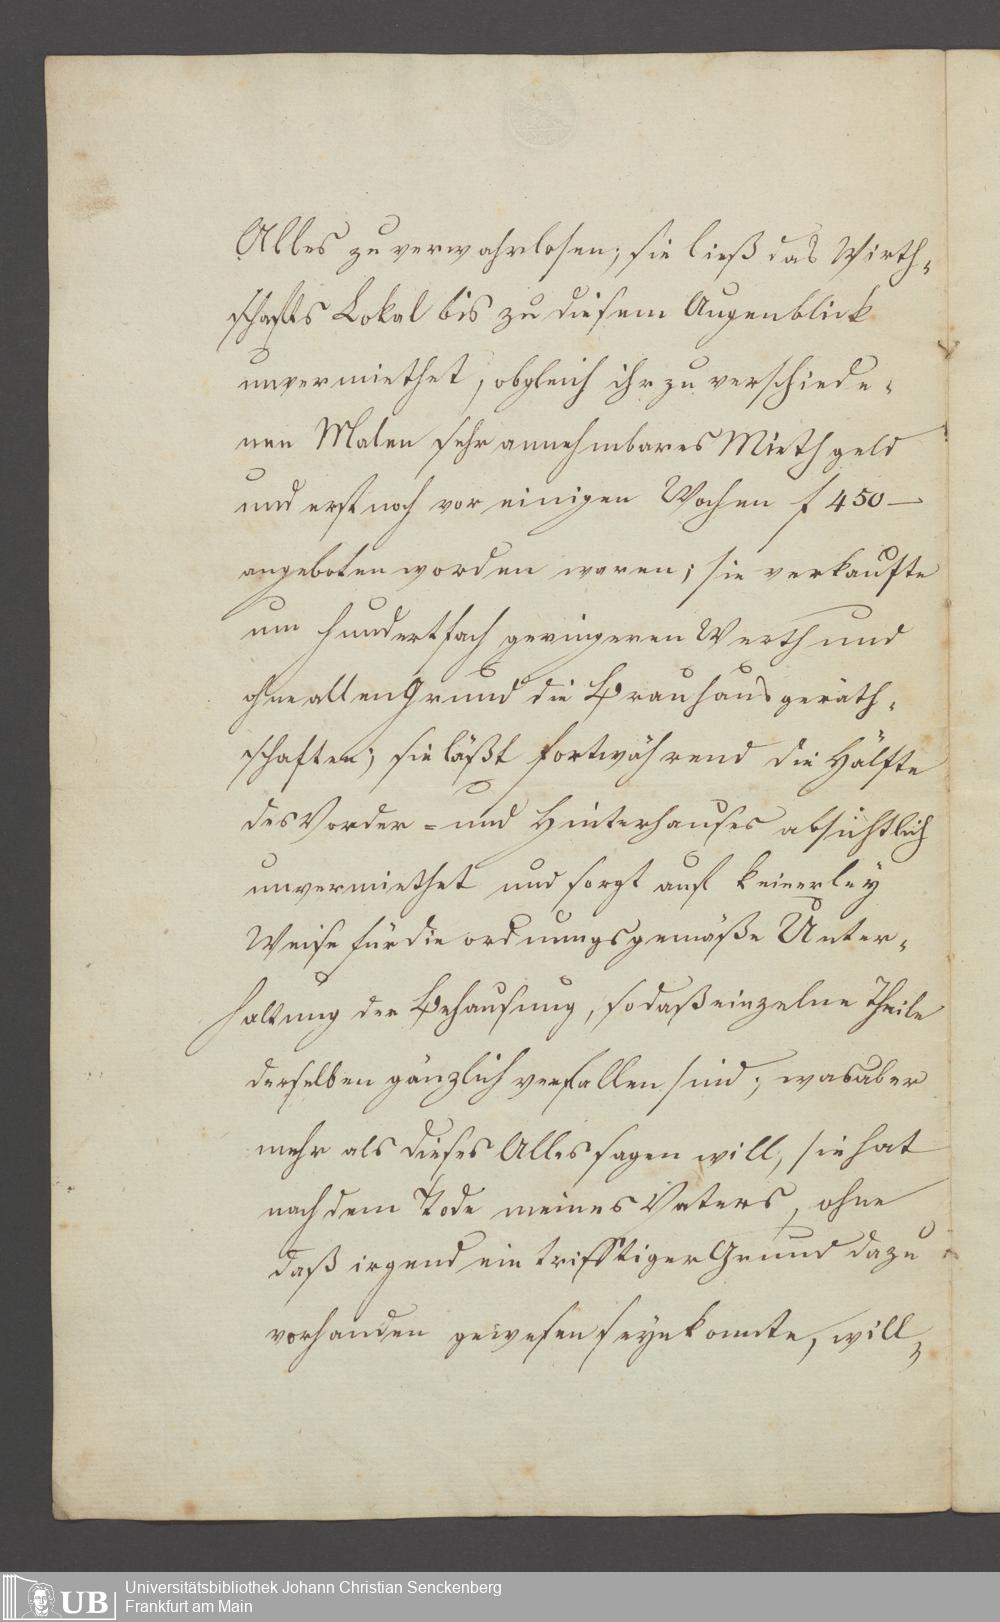 Alles zu verwahrlosen; sie ließ das Wirth-
schafts Lokal bis zu diesem Augenblick
unvermiethet, obgleich ihr zu verschiede-
nen Malen sehr annehmbares Miethgeld
und erst noch vor einigen Wochen f 450 —
angeboten worden waren; sie verkaufte
um hundertfach geringeren Werth und
ohne allen Grund die Brauhausgeräth-
schaften; sie läßt fortwährend die Hälfte
des Vorder- und Hinterhauses absichtlich
unvermiethet und sorgt auf keinerley
Weise für die ordnungsgemäße Unter-
haltung der Behausung, so daß einzelne Theile
derselben gänzlich verfallen sind; was aber
mehr als dieses Alles sagen will, sie hat
nach dem Tode meines Vaters, ohne
daß irgend ein trifftiger Grund dazu
vorhanden gewesen seyn konnte, will-
UB
Universitätsbibliothek Johann Christian Senckenberg
Frankfurt am Main